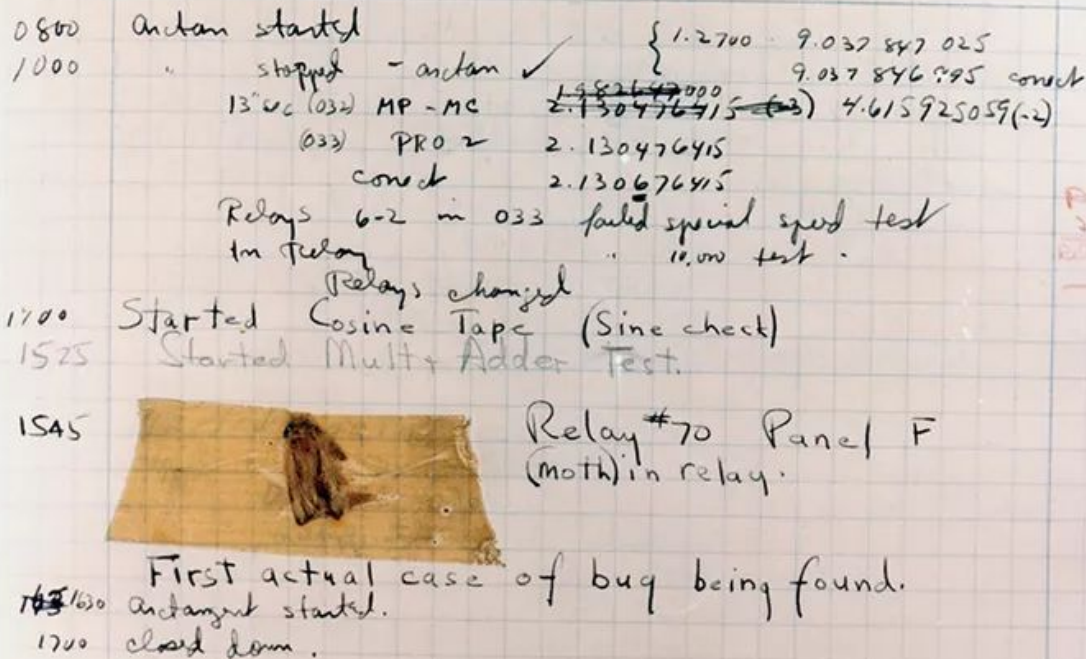 0800 arctan started { 1.2700 9.037 847 025
1000 " stopped - arctan ✓ 9.037 846 795 correct
13"uc (032) MP - MC 1.982647000 2.130476415 (-3) 4.615925059(-2)
(033) PRO 2 2.130476415
correct 2.130676415
Relays 6-2 in 033 failed special speed test
In Relay " 10,000 test .
Relays changed
1700 Started Cosine Tape (Sine check)
1525 Started Mult + Adder Test.
1545 Relay #70 Panel F
(moth) in relay.
First actual case of bug being found.
1630 arctangent started.
1700 closed down .